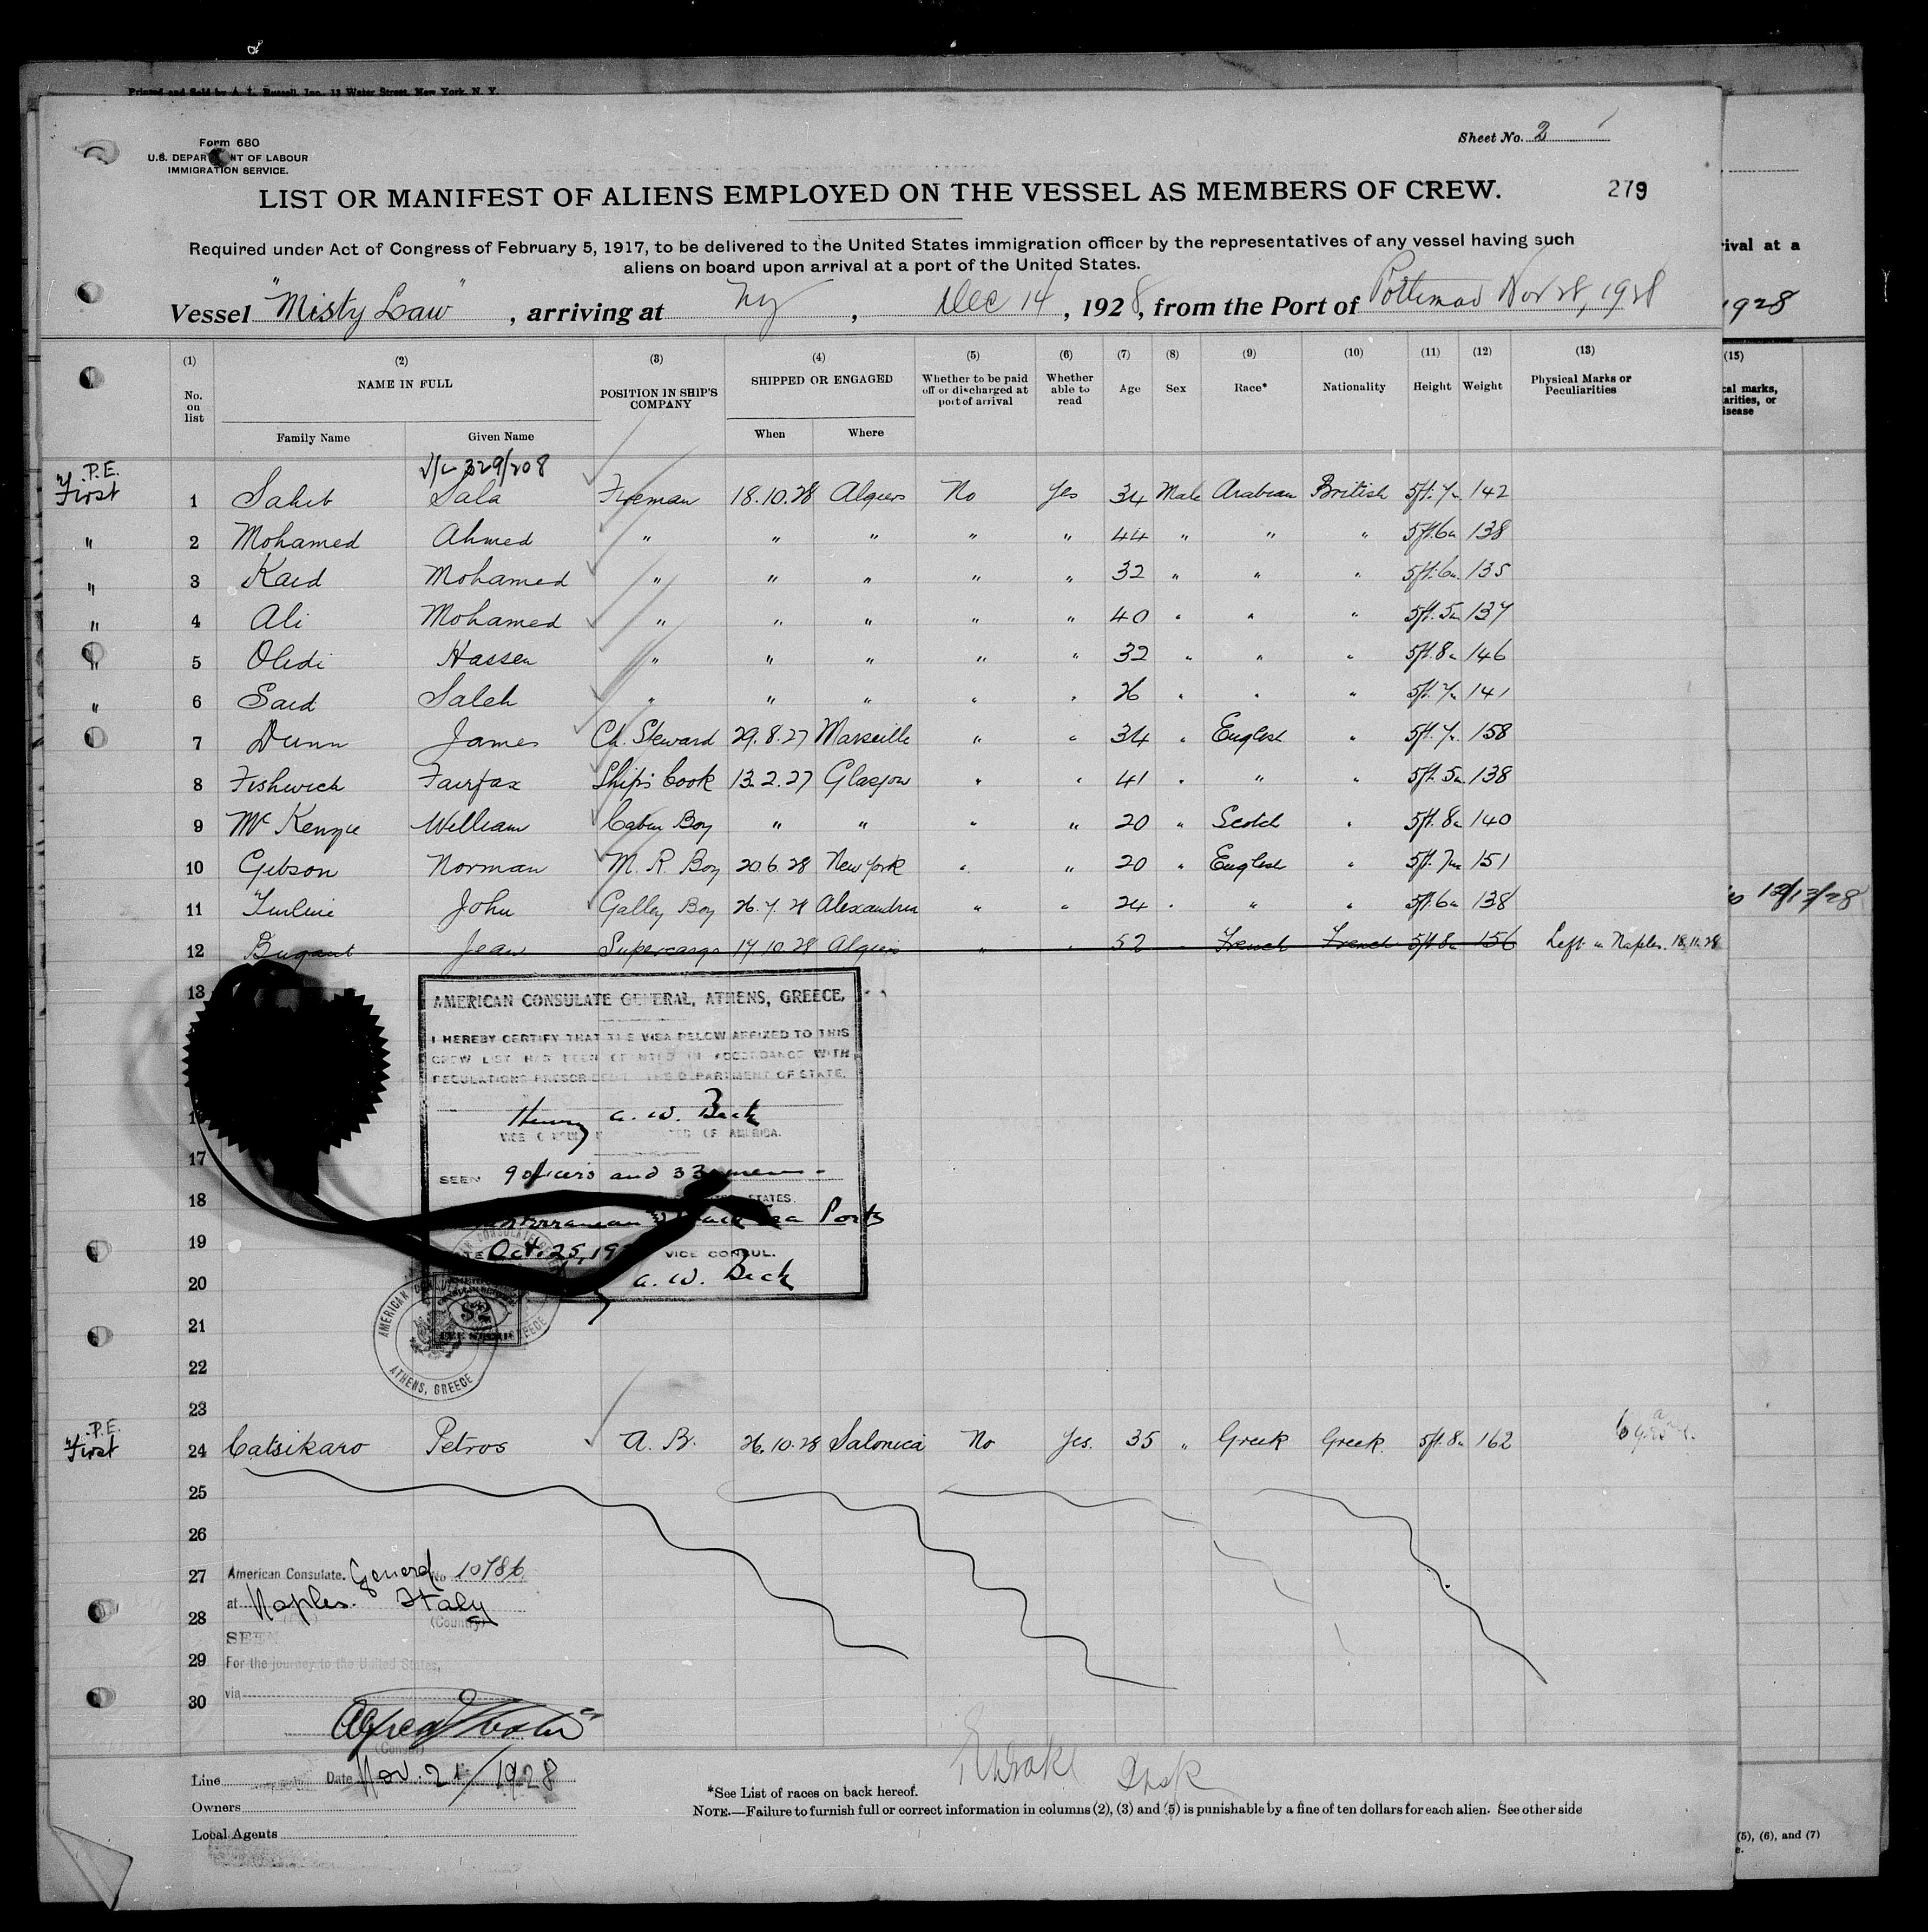 Printed and Sold by A. L. Russell, Inc., 13 Water Street, New York, N. Y.
Form 680
U.S. DEPARTMENT OF LABOUR
IMMIGRATION SERVICE.
Sheet No. 2
LIST OR MANIFEST OF ALIENS EMPLOYED ON THE VESSEL AS MEMBERS OF CREW.
279
Required under Act of Congress of February 5, 1917, to be delivered to the United States immigration officer by the representatives of any vessel having such
aliens on board upon arrival at a port of the United States.
rival at a
Vessel "Misty Law", arriving at Ny, Dec 14, 1928, from the Port of Nov 28, 1928
1928
(1) (2) (3) (4) (5) (6) (7) (8) (9) (10) (11) (12) (13) (15)
No. on list NAME IN FULL POSITION IN SHIP'S COMPANY SHIPPED OR ENGAGED Whether to be paid off or discharged at port of arrival Whether able to read Age Sex Race* Nationality Height Weight Physical Marks or Peculiarities
cal marks, arities, or isease
Family Name Given Name When Where
P.E. 329/208
First 1 Saheb Sala Fireman 18.10.28 Algiers No Yes 34 Male Arabian British 5ft.7in 142
" 2 Mohamed Ahmed " " " " " 44 " " " 5ft.6in 138
" 3 Kaid Mohamed " " " " " 32 " " " 5ft.6in 135
" 4 Ali Mohamed " " " " " 40 " " " 5ft.5in 137
" 5 Obedi Hassen " " " " " 32 " " " 5ft.8in 146
" 6 Said Saleh " " " " " 26 " " " 5ft.7in 141
7 Dunn James Ch. Steward 29.8.27 Marseille " " 34 " English " 5ft.7in 158
8 Fishwick Fairfax Ship's Cook 13.2.27 Glasgow " " 41 " " " 5ft.5in 138
9 Mc Kenzie William Cabin Boy " " " " 20 " Scotch " 5ft.8in 140
10 Gibson Norman M. R. Boy 20.6.28 New York " " 20 " English " 5ft.7in 151
11 John Galley Boy 26.7.28 Alexandria " " 24 " " " 5ft.6in 138
12/13/28
12 Jean Supercargo 17.10.28 Algiers " " 52 " French French 5ft.8in 156 Left in Naples. 18.11.28
13
AMERICAN CONSULATE GENERAL, ATHENS, GREECE.
I HEREBY CERTIFY THAT THE VISA BELOW AFFIXED TO THIS
CREW LIST HAS BEEN GRANTED IN ACCORDANCE WITH
REGULATIONS PRESCRIBED THE DEPARTMENT OF STATE.
Henry a. W. Beck
VICE CONSUL OF AMERICA.
17
SEEN 9 officers and 33 men -
18
STATES.
Sea Ports
19
Oct. 25, 19 VICE CONSUL.
20
a. W. Beck
AMERICAN CONSULATE
ATHENS, GREECE
21
22
23
P.E.
First 24 Catsikaro Petros A. B. 26.10.28 Salonica No Yes. 35 " Greek Greek. 5ft.8in 162
25
26
27 American Consulate. General No 10786
at Naples. Italy
28 (Country)
SEEN
29 For the journey to the United States,
30 via
(Consul)
Line
Date Nov. 21/1928
Owners
Local Agents
*See List of races on back hereof.
NOTE.—Failure to furnish full or correct information in columns (2), (3) and (5) is punishable by a fine of ten dollars for each alien. See other side
(5), (6), and (7)